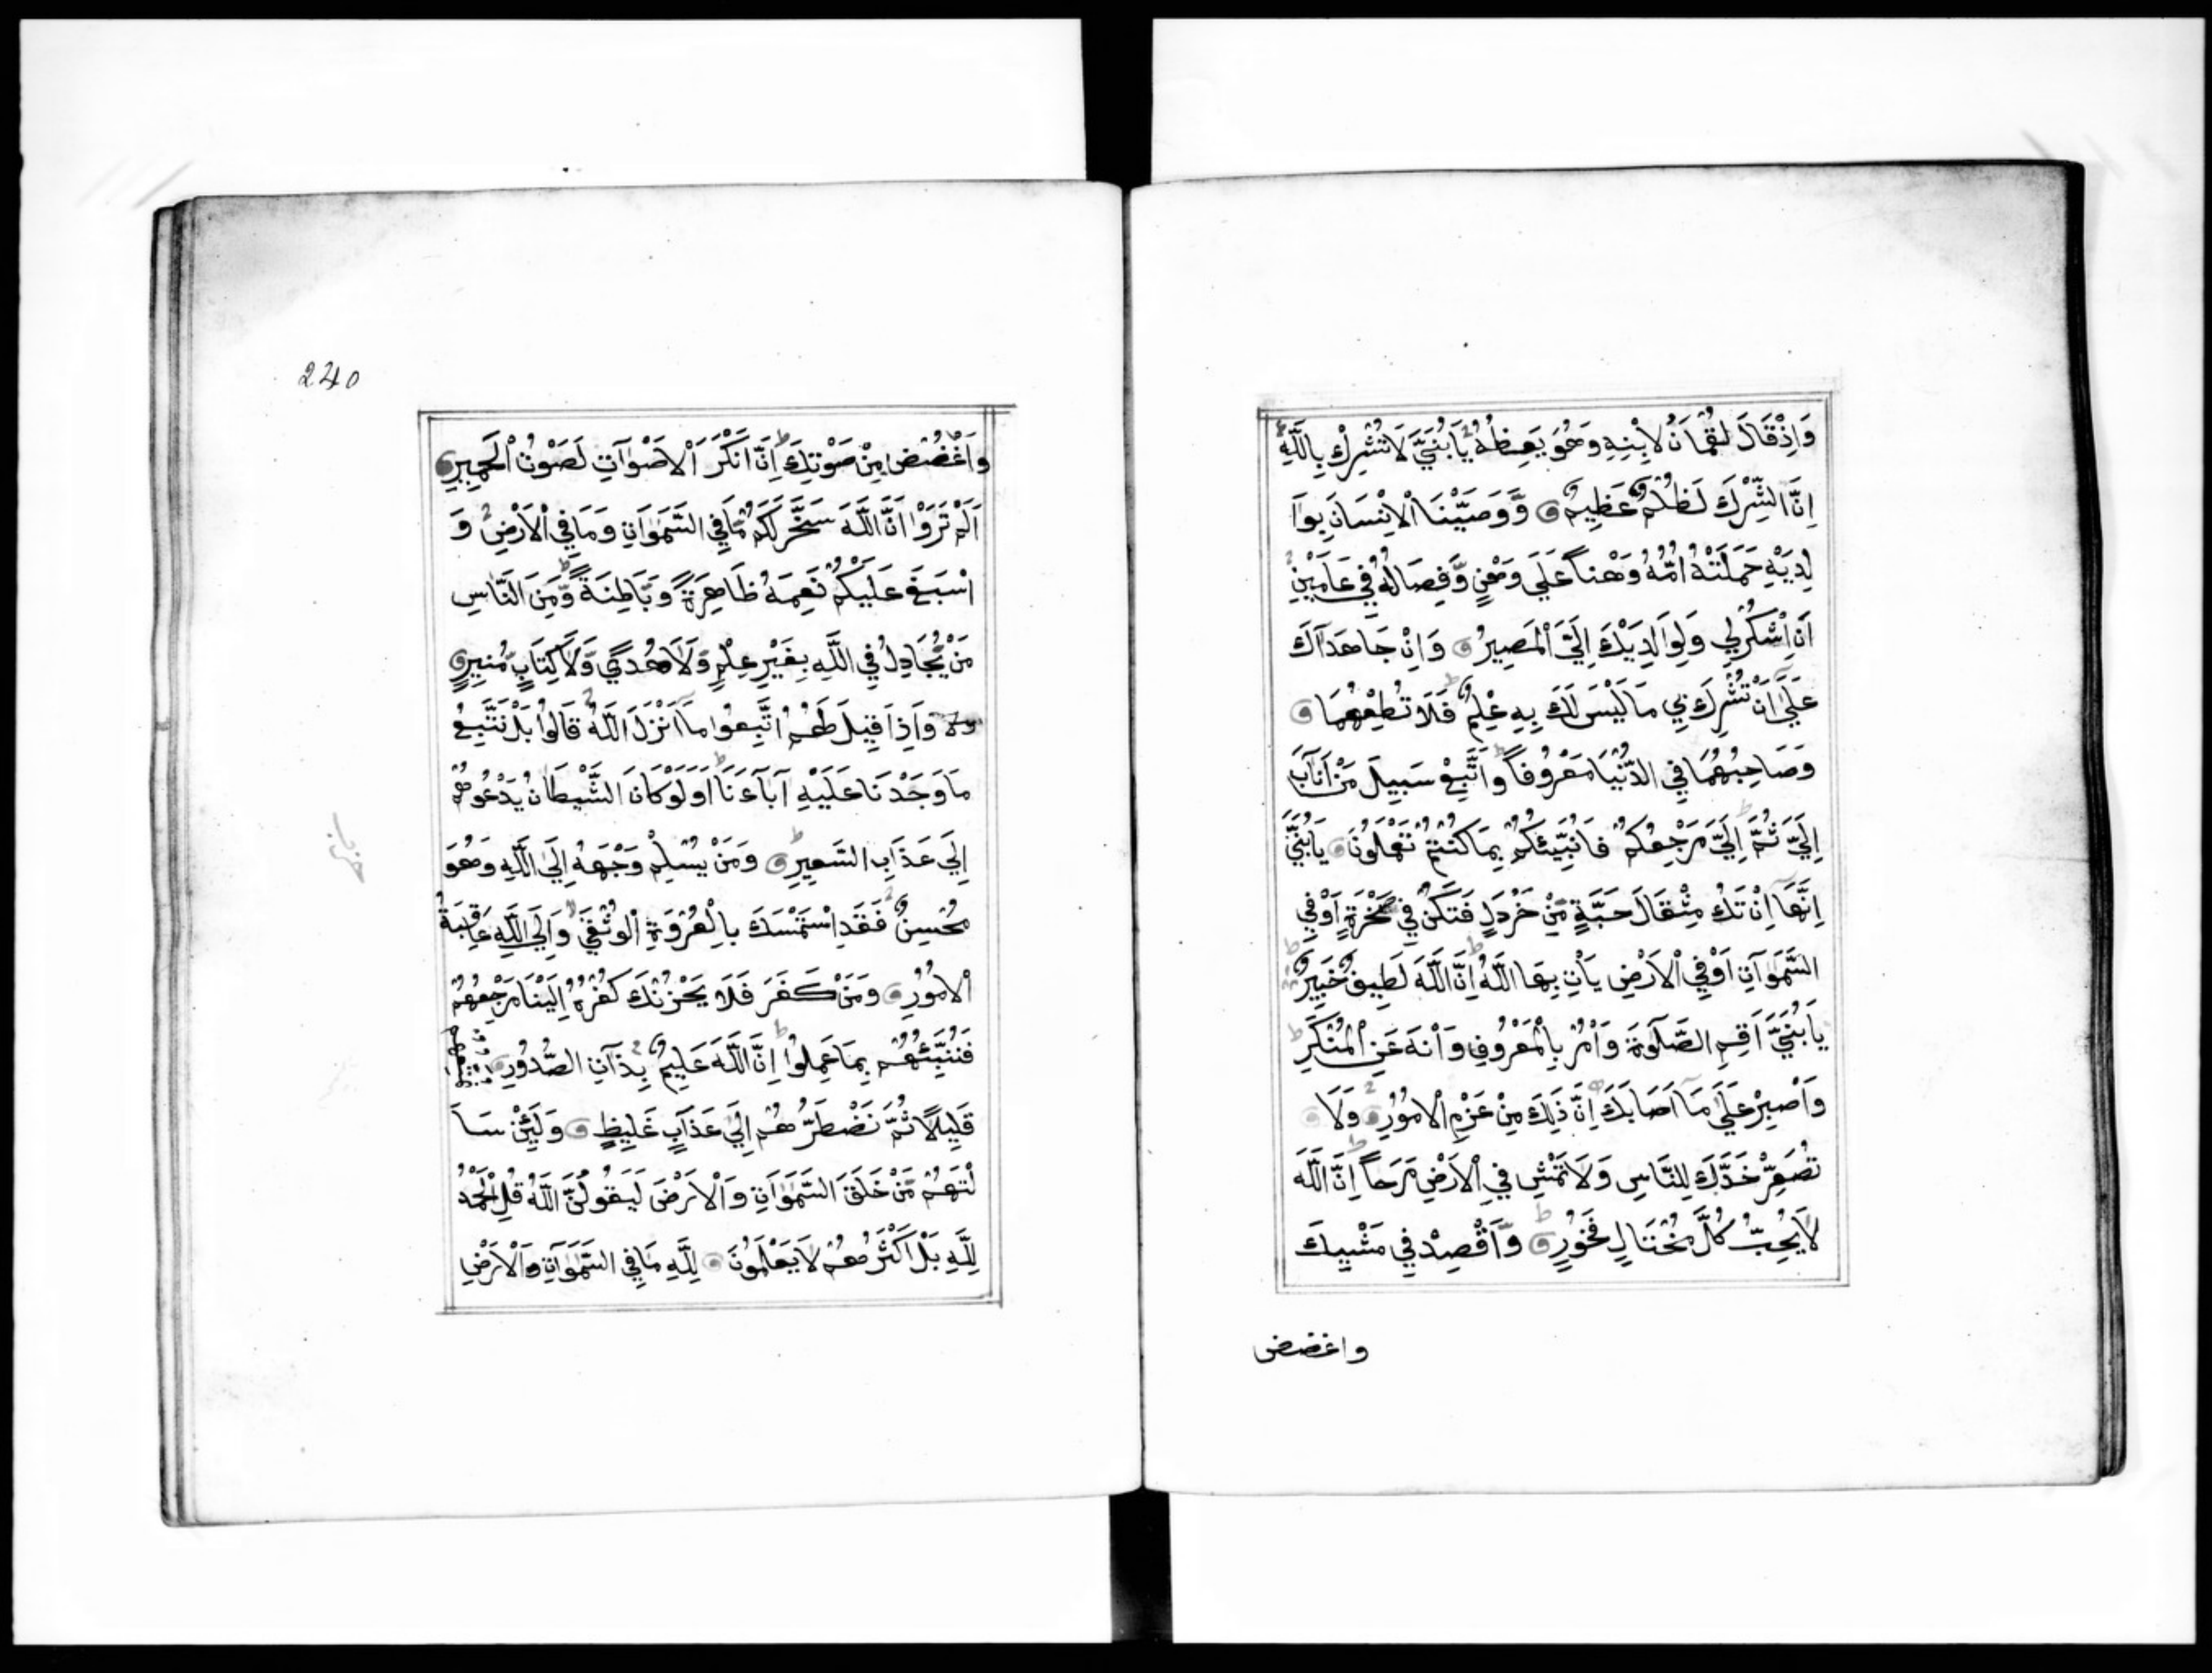 وَاِذْقَالَ لُقْمَانُ لِابْنِهِ وَهُوَ يَعِظُهُ يَابُنَيَّ لَاتُشْرِكْ بِاللَّهِ
اِنَّ الشِّرْكَ لَظُلْمٌ عَظِيمٌ وَّوَصَّيْنَا الْاِنْسَانَ بِوَا
لِدَيْهِ حَمَلَتْهُ اُمُّهُ وَهْناً عَلَي وَهْنٍ وَّفِصَالُهُ فِي عَامَيْنِ
اَنِ اشْكُرْلِي وَلِوَالِدَيْكَ اِلَيَّ الْمَصِيرُ وَاِنْ جَاهَدَاَكَ
عَلَيَ اَنْ تُشْرِكَ بِي مَالَيْسَ لَكَ بِهِ عِلْمٌ فَلَا تُطِعْهُمَا
وَصَاحِبْهُمَا فِي الدُّنْيَا مَعْرُوفاً وَّاتَّبِعْ سَبِيلَ مَنْ اَنَابَ
اِلَيَّ ثُمَّ اِلَيَّ مَرْجِعُكُمْ فَاُنَبِّئُكُمْ بِمَا كُنْتُمْ تَعْمَلُونَ يَابُنَيَّ
اِنَّهَا اِنْ تَكُ مِثْقَالَ حَبَّةٍ مِّنْ خَرْدَلٍ فَتَكُنْ فِي صَخْرَةٍ اَوْفِي
السَّمَوَاتِ اَوْفِي الْاَرْضِ يَاْتِ بِهَا اللَّهُ اِنَّ اللَّهَ لَطِيفٌ خَبِيرٌ
يَابُنَيَّ اَقِمِ الصَّلَوةَ وَاْمُرْ بِالْمَعْرُوفِ وَانْهَ عَنِ الْمُنْكَرِ
وَاصْبِرْ عَلَي مَا اَصَابَكَ اِنَّ ذَلِكَ مِنْ عَزْمِ الْاُمُورِ وَلَا
تُصَعِّرْ خَدَّكَ لِلنَّاسِ وَلَا تَمْشِ فِي الْاَرْضِ مَرَحاً اِنَّ اللَّهَ
لَا يُحِبُّ كُلَّ مُخْتَالٍ فَخُورٍ وَّاقْصِدْ فِي مَشْيِكَ
واغضض
240
وَاغْضُضْ مِنْ صَوْتِكَ اِنَّ اَنْكَرَ الْاَصْوَاتِ لَصَوْتُ الْحَمِيرِ
اَلَمْ تَرَوْا اَنَّ اللَّهَ سَخَّرَ لَكُمْ مَّافِي السَّمَوَاتِ وَمَا فِي الْاَرْضِ وَ
اَسْبَغَ عَلَيْكُمْ نِعَمَهُ ظَاهِرَةً وَبَاطِنَةً وَّمِنَ النَّاسِ
مَنْ يُّجَادِلُ فِي اللَّهِ بِغَيْرِ عِلْمٍ وَّلَا هُدًي وَّلَا كِتَابٍ مُّنِيرٍ
وَاِذَا قِيلَ لَهُمُ اتَّبِعُوا مَا اَنْزَلَ اللَّهُ قَالُوا بَلْ نَتَّبِعُ
مَا وَجَدْنَا عَلَيْهِ اَبَاءَنَا اَوَلَوْ كَانَ الشَّيْطَانُ يَدْعُوهُمْ
اِلَي عَذَابِ السَّعِيرِ وَمَنْ يُسْلِمْ وَجْهَهُ اِلَي اللَّهِ وَهُوَ
مُحْسِنٌ فَقَدِ اسْتَمْسَكَ بِالْعُرْوَةِ الْوُثْقَي وَاِلَي اللَّهِ عَاقِبَةُ
الْاُمُورِ وَمَنْ كَفَرَ فَلَا يَحْزُنْكَ كُفْرُهُ اِلَيْنَا مَرْجِعُهُمْ
فَنُنَبِّئُهُمْ بِمَا عَمِلُوا اِنَّ اللَّهَ عَلِيمٌ بِذَاتِ الصُّدُورِ نُمَتِّعُهُمْ
قَلِيلًا ثُمَّ نَضْطَرُّهُمْ اِلَي عَذَابٍ غَلِيظٍ وَلَئِنْ سَاَ
لْتَهُمْ مَّنْ خَلَقَ السَّمَوَاتِ وَالْاَرْضَ لَيَقُولُنَّ اللَّهُ قُلِ الْحَمْدُ
لِلَّهِ بَلْ اَكْثَرُهُمْ لَا يَعْلَمُونَ لِلَّهِ مَا فِي السَّمَوَاتِ وَالْاَرْضِ